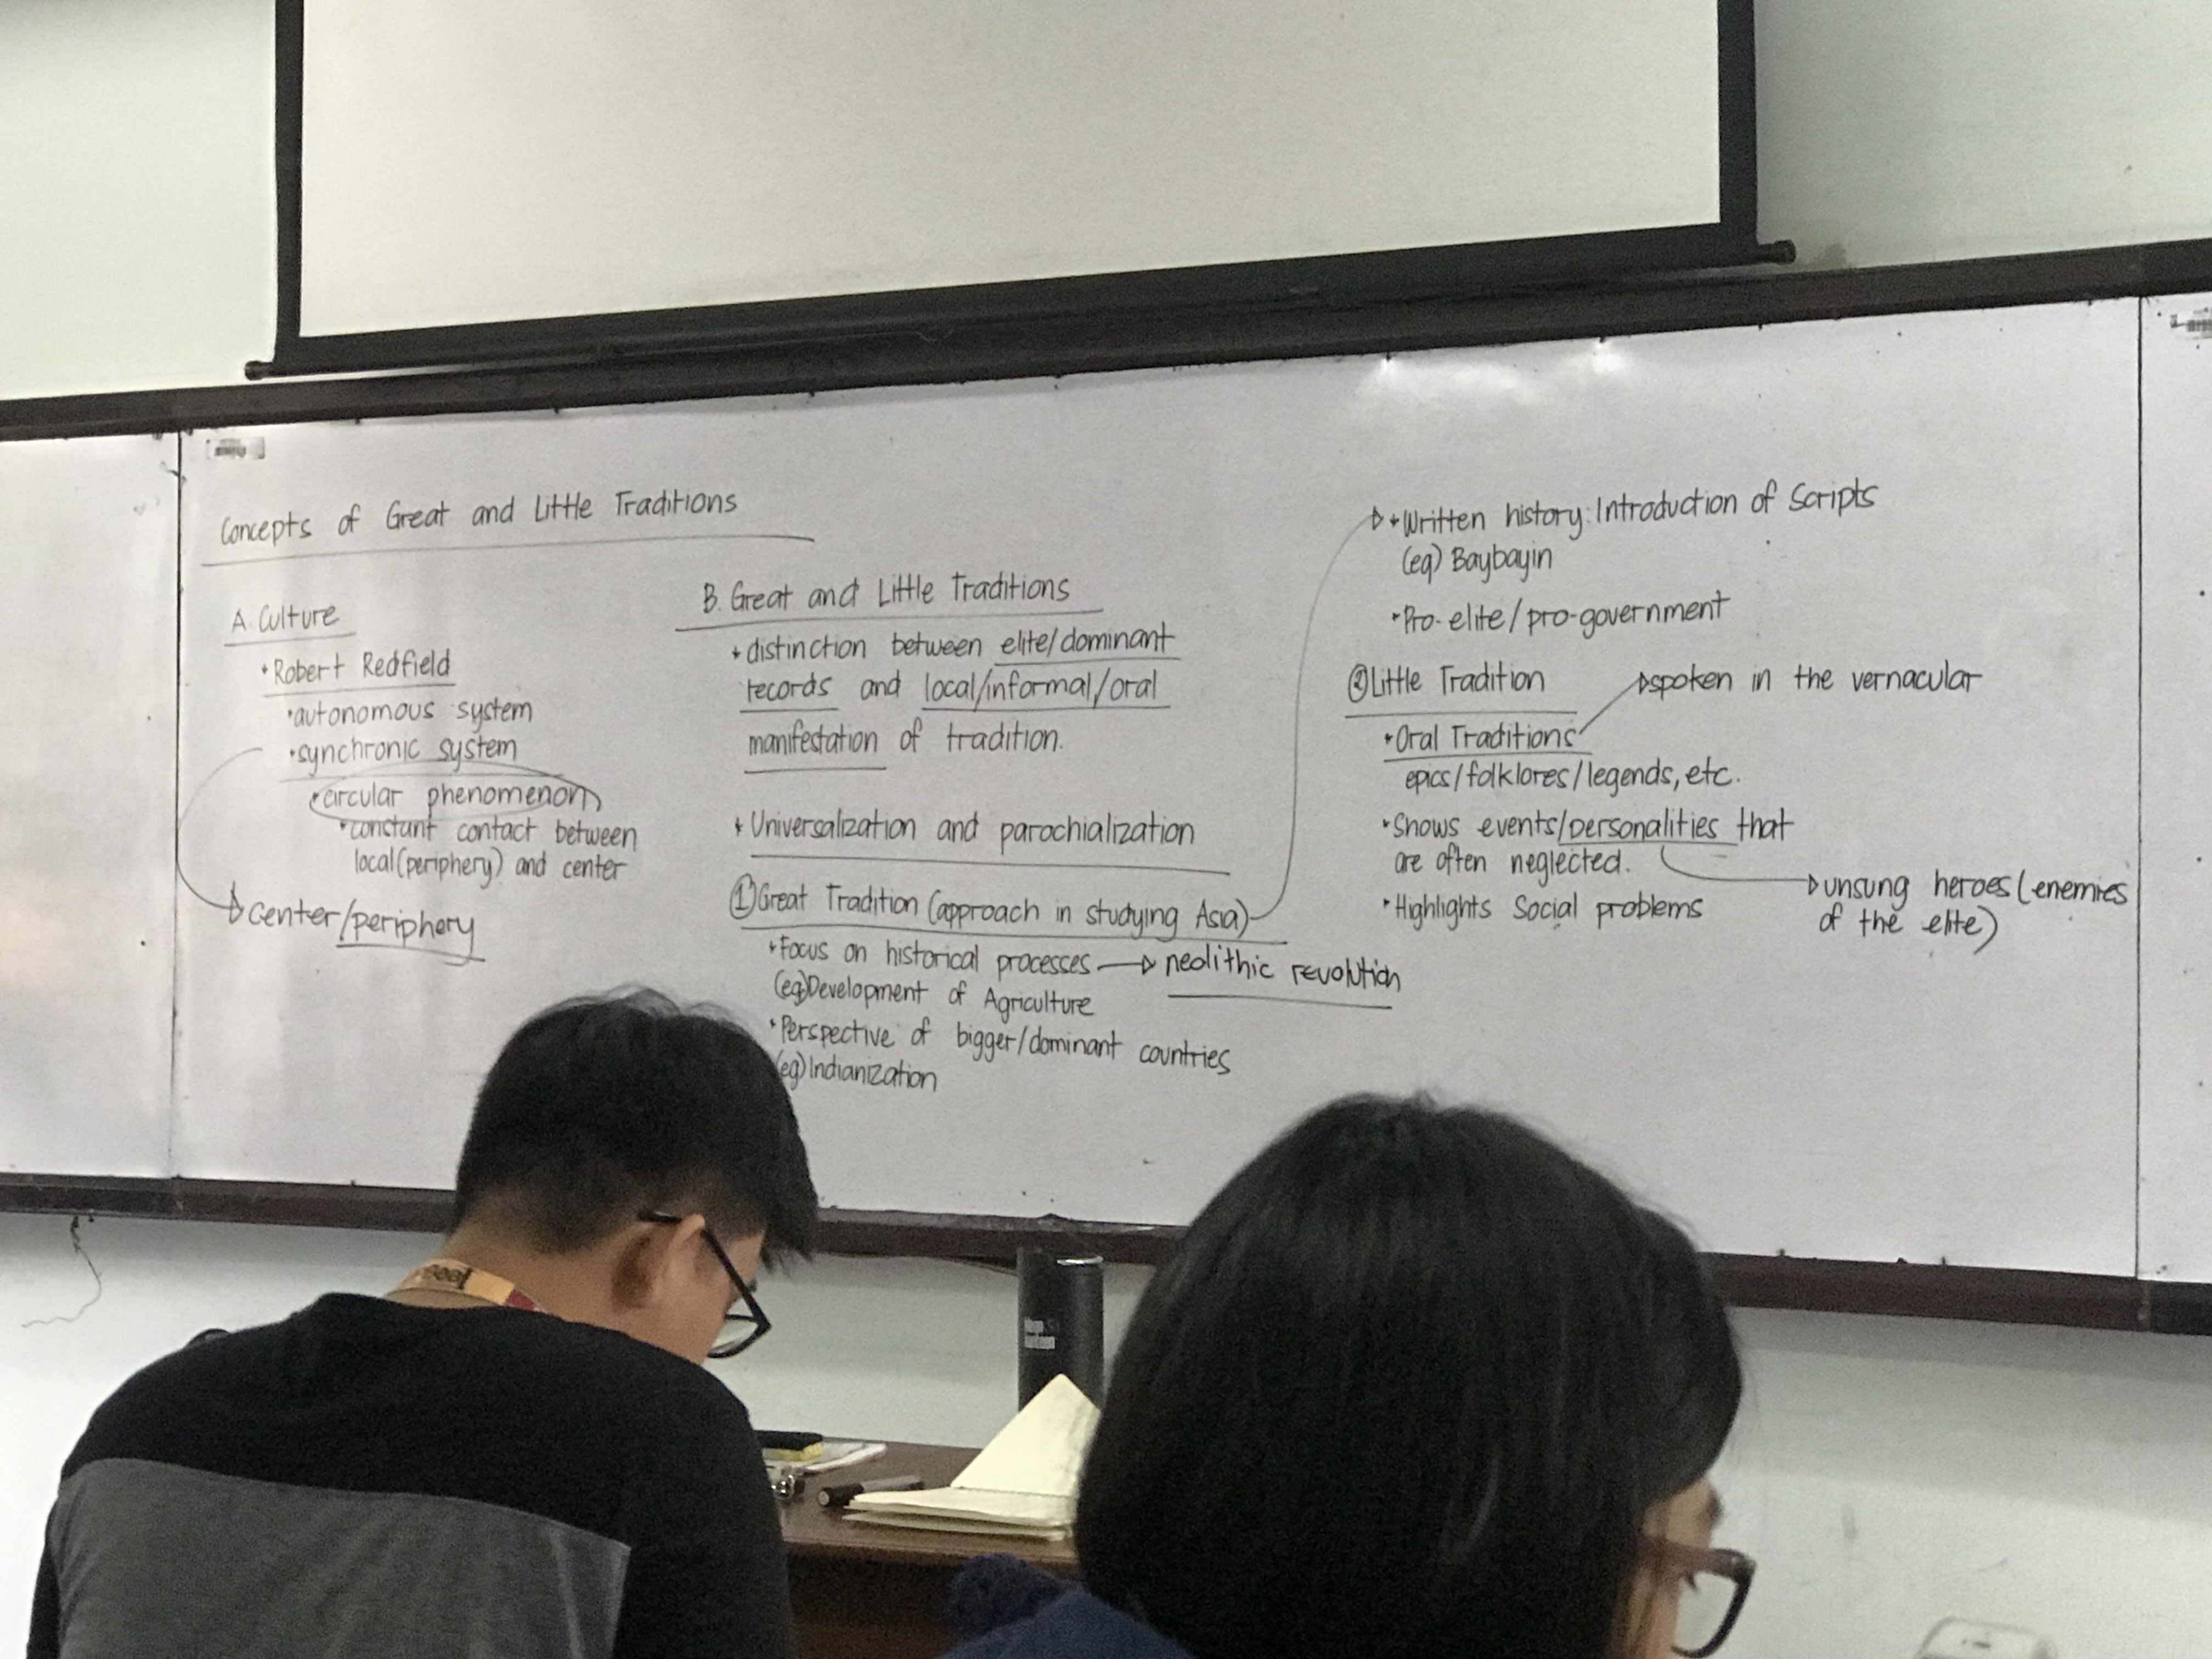 Concepts of Great and Little Traditions
A. Culture
• Robert Redfield
• autonomous system
• synchronic system
• circular phenomenon
• constant contact between
local (periphery) and center
center/periphery
B. Great and Little Traditions
• distinction between elite/dominant
records and local/informal/oral
manifestation of tradition.
• Universalization and parochialization
① Great Tradition (approach in studying Asia)
• Focus on historical processes → neolithic revolution
(eg) Development of Agriculture
• Perspective of bigger/dominant countries
(eg) Indianization
• Written history: Introduction of Scripts
(eg) Baybayin
• Pro-elite/pro-government
② Little Tradition
spoken in the vernacular
• Oral Traditions
epics/folklores/legends, etc.
• Shows events/personalities that
are often neglected.
unsung heroes (enemies
of the elite)
• Highlights Social problems